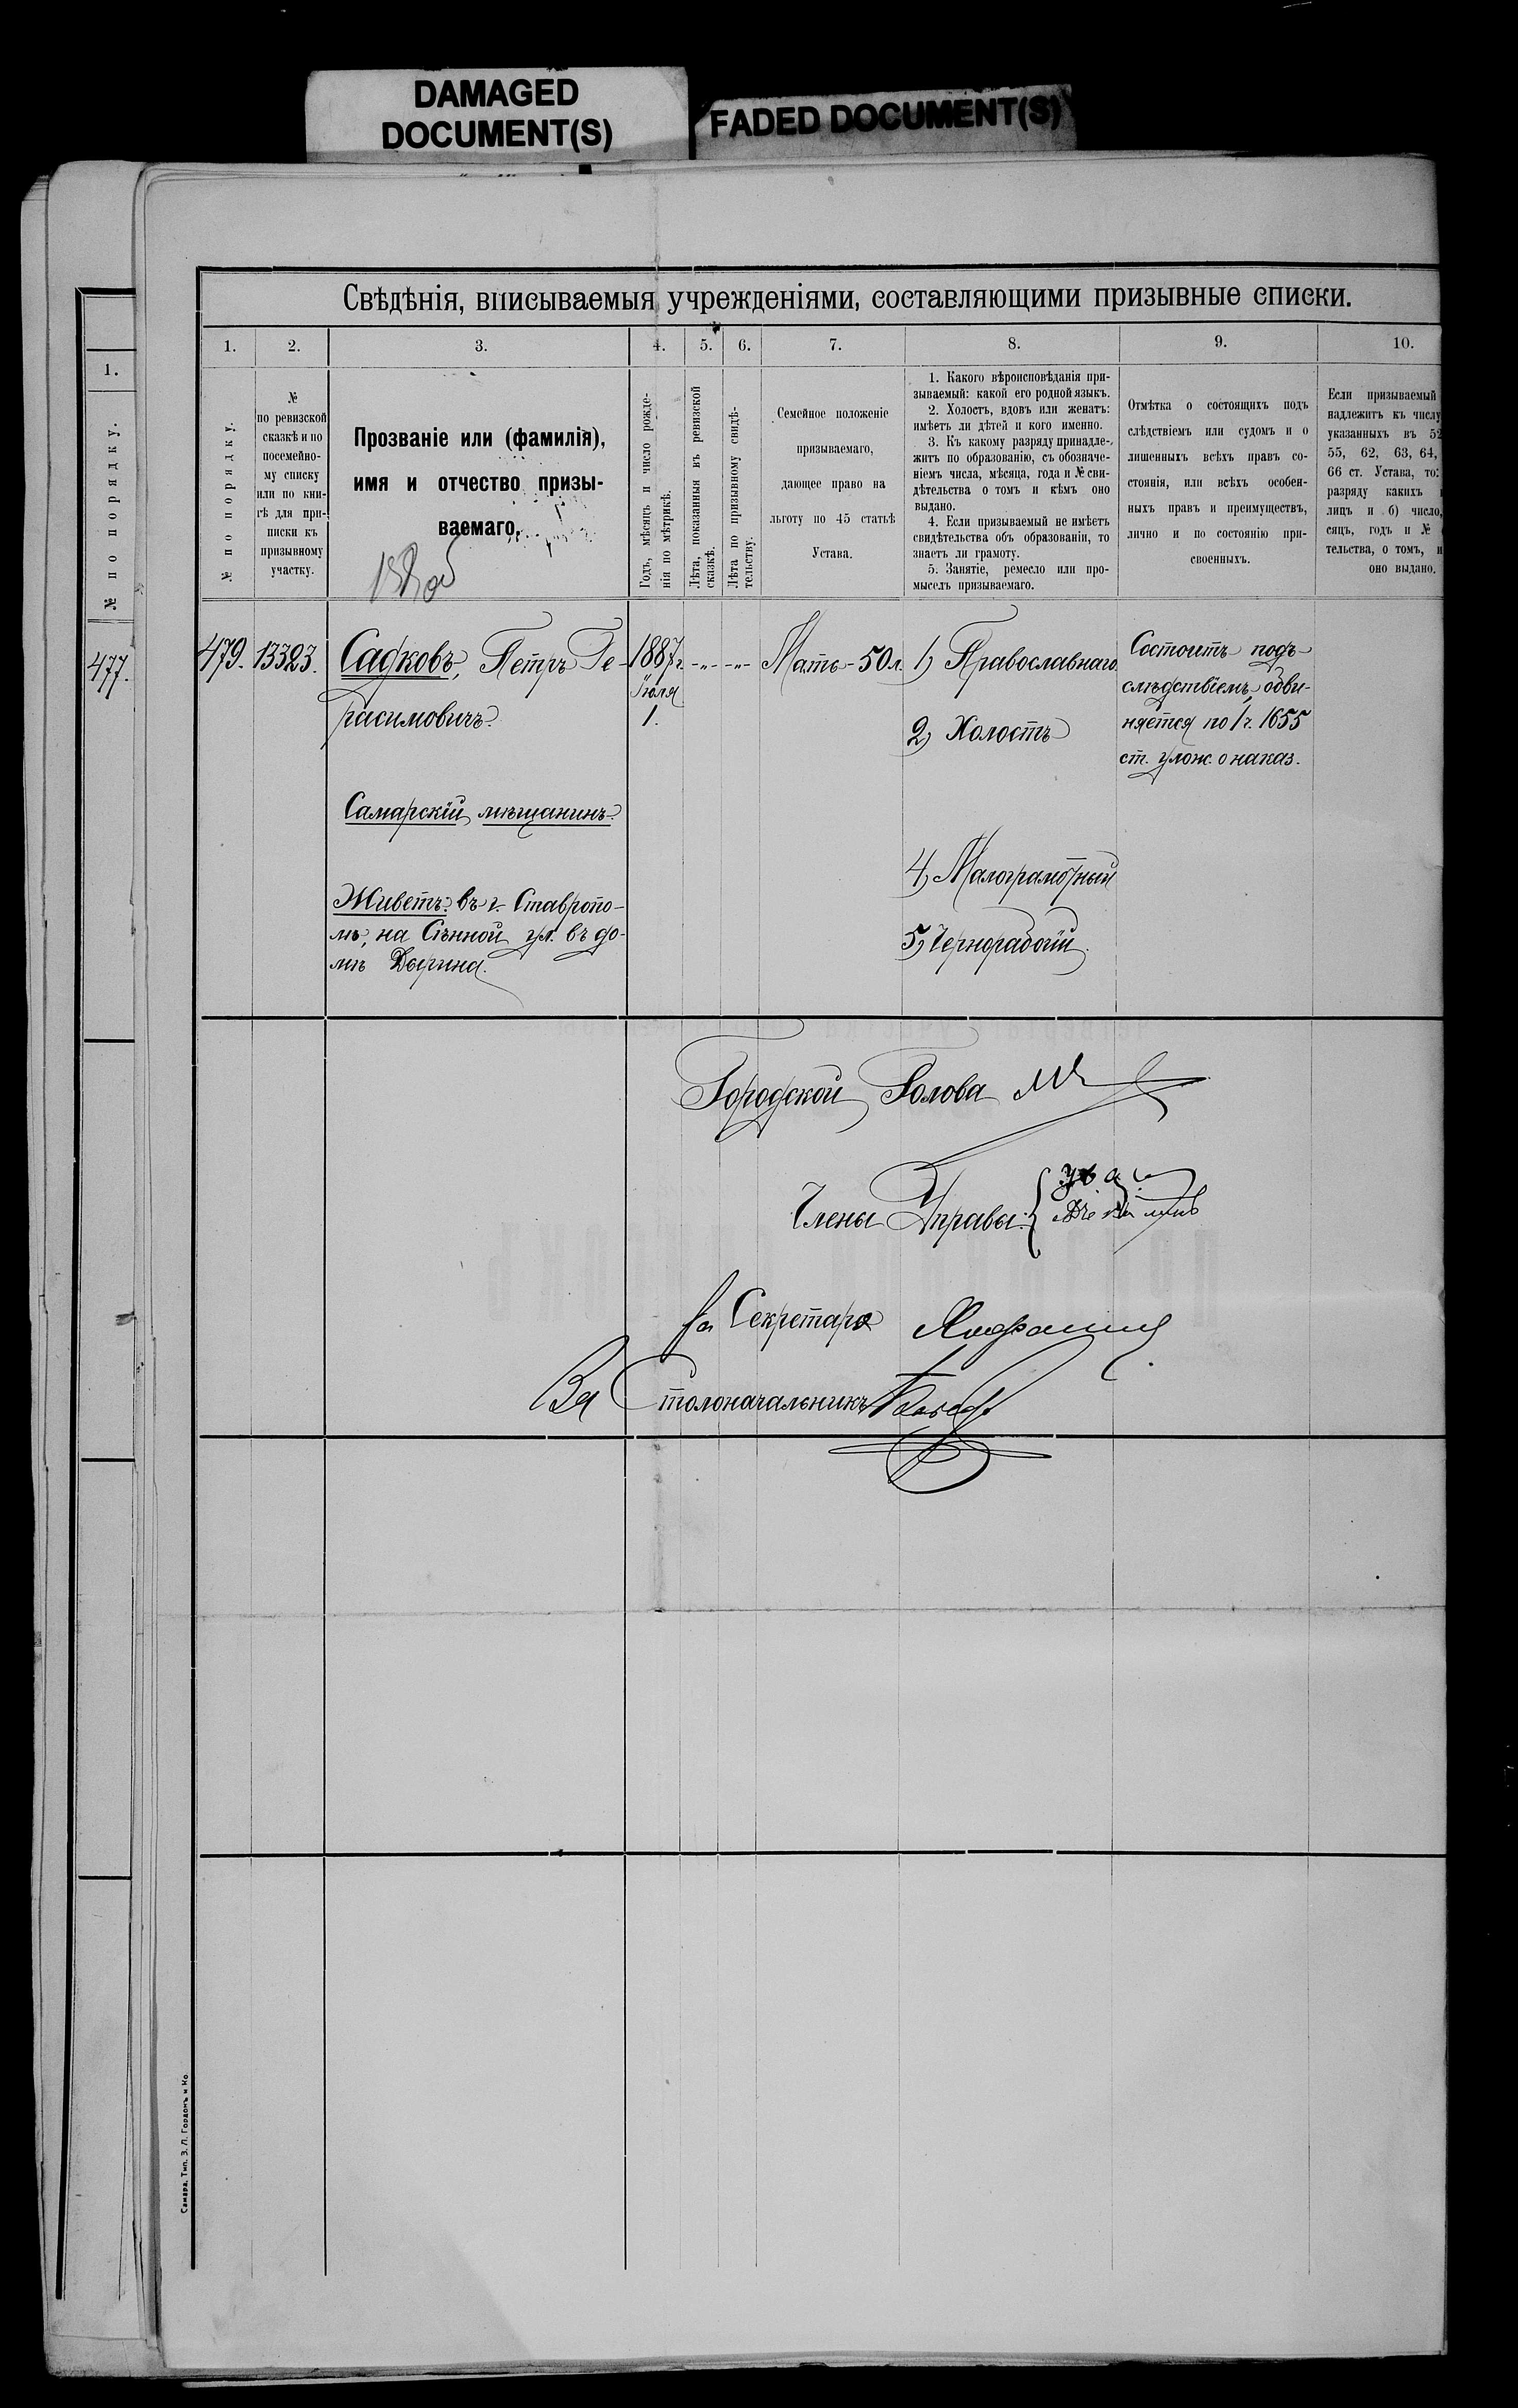 DAMAGED
DOCUMENT(S)
FADED DOCUMENT(S)
1.
№ по порядку.
477.
Свѣдѣнія, вписываемыя учрежденіями, составляющими призывные списки.
1.
2.
3.
4.
5.
6.
7.
8.
9.
10.
№ по порядку.
№
по ревизской
сказкѣ и по
посемейно-
му списку
или по кни-
гѣ для при-
писки къ
призывному
участку.
Прозваніе или (фамилія),
имя и отчество призы-
ваемаго.
Годъ, мѣсяцъ и число рожде-
нія по метрикѣ.
Лѣта, показанныя въ ревизской
сказкѣ.
Лѣта по призывному свидѣ-
тельству.
Семейное положеніе
призываемаго,
дающее право на
льготу по 45 статьѣ
Устава.
1. Какого вѣроисповѣданія при-
зываемый: какой его родной языкъ.
2. Холостъ, вдовъ или женатъ:
имѣетъ ли дѣтей и кого именно.
3. Къ какому разряду принадле-
житъ по образованію, съ обозначе-
ніемъ числа, мѣсяца, года и № сви-
дѣтельства о томъ и кѣмъ оно
выдано.
4. Если призываемый не имѣетъ
свидѣтельства объ образованіи, то
знаетъ ли грамоту.
5. Занятіе, ремесло или про-
мыселъ призываемаго.
Отмѣтка о состоящихъ подъ
слѣдствіемъ или судомъ и о
лишенныхъ всѣхъ правъ со-
стоянія, или всѣхъ особен-
ныхъ правъ и преимуществъ,
лично и по состоянію при-
своенныхъ.
Если призываемый
надлежитъ къ числу
указанныхъ въ 52
55, 62, 63, 64,
66 ст. Устава, то:
разряду какихъ
лицъ и б) число,
сяцъ, годъ и №
тельства, о томъ, и
оно выдано.
479.
13323.
Садковъ, Петръ Ге-
расимовичъ.
Самарскій мѣщанинъ.
Живетъ въ г. Ставропо-
лѣ, на Сѣнной ул. въ до-
мѣ Дырина.
1887 г.
Іюля
1.
-„-
-„-
Мать - 50 л.
1) Православнаго
2) Холостъ
4) Малограмотный
5) Чернорабочій.
Состоитъ подъ
слѣдствіемъ, обви-
няется по 1 ч. 1655
ст. улож. о наказ.
Городской Голова
Члены Управы:
За Секретаря
За Столоначальникъ
Самара, Тип. З. Л. Гордонъ и Ко.